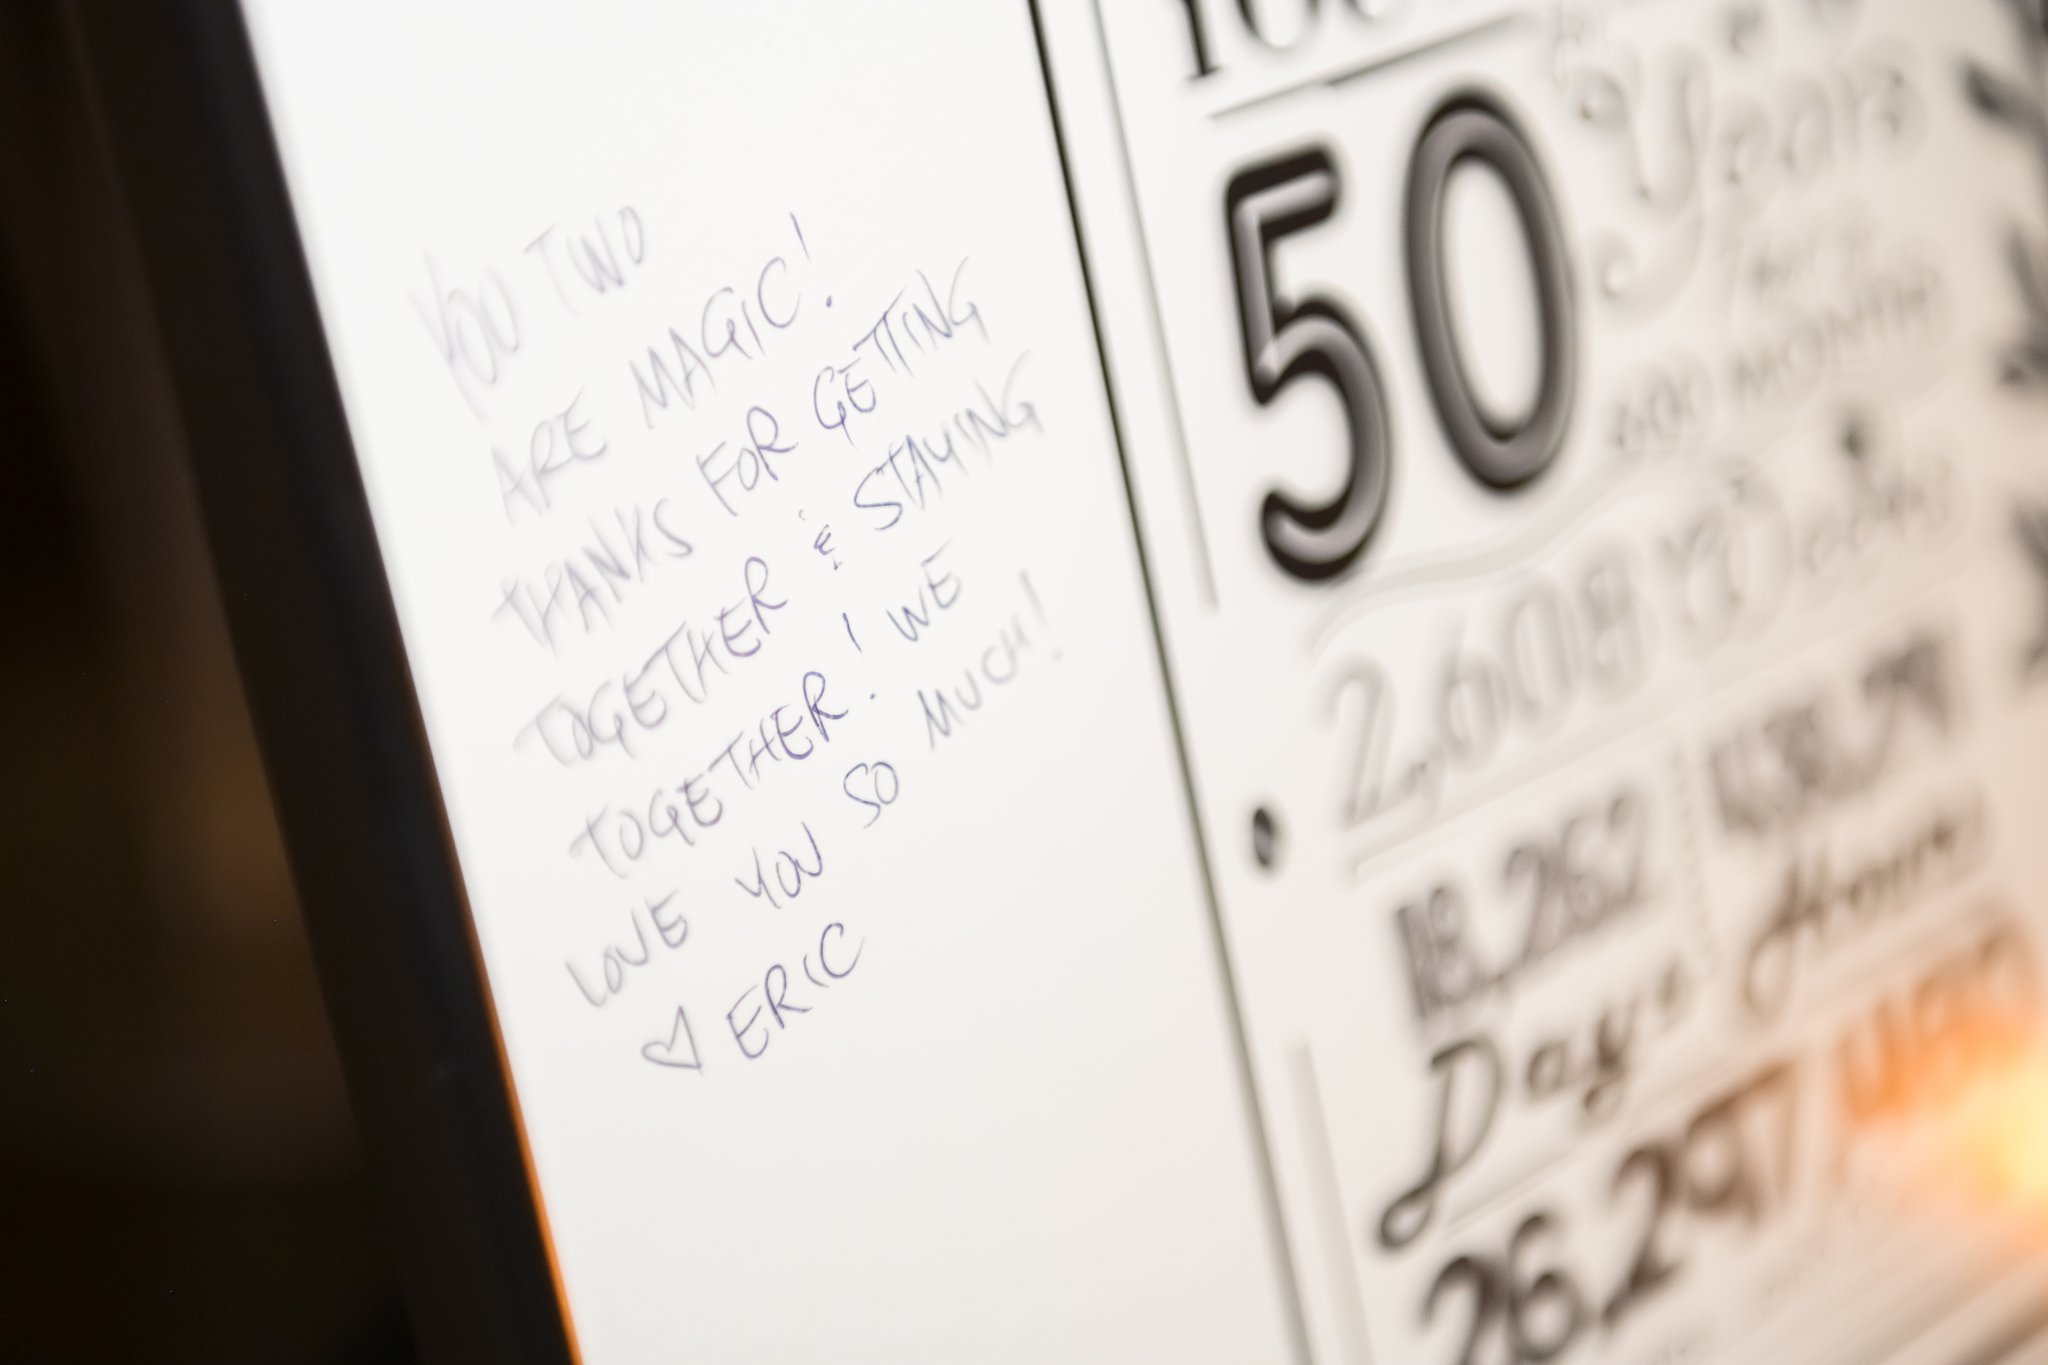 YOU TWO
ARE MAGIC!
THANKS FOR GETTING
TOGETHER & STAYING
TOGETHER! WE
LOVE YOU SO MUCH!
♡ ERIC
50 Years
600 MONTHS
2,608 Weeks
18,262
Days Hours
26,297